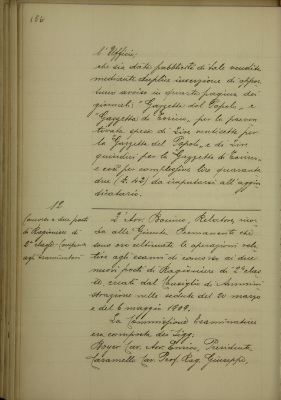 186
l'Ufficio;
che sia data pubblicità di tale vendita
mediante duplice inserzione di appo-
avviso in quarta pagina dei
giornali "Gazzetta del Popolo" e
"Gazzetta di Torino", per la preven-
tivata spesa di Lire ventisette per
la Gazzetta del Popolo, e di Lire
quindici per la Gazzetta di Torino,
e così per complessive lire quaranta
due (£. 42) da imputarsi all'aggiu-
dicatario.
12
Concorso a due posti
di Ragioniere di
2ª Classe. Compenso
agli esaminatori
L'Avv. Bonino, Relatore, ricor-
da alla Giunta Permanente che
sono ora ultimate le operazioni rela-
tive agli esami di concorso ai due
nuovi posti di Ragioniere di 2ª clas-
se, creati dal Consiglio di Ammini-
strazione nelle sedute del 20 marzo
e del 6 maggio 1909.
La Commissione Esaminatrice
era composta dei Sigg.
Cav. Avv. Enrico, Presidente,
Caramello Cav. Prof. Rag. Giuseppe,